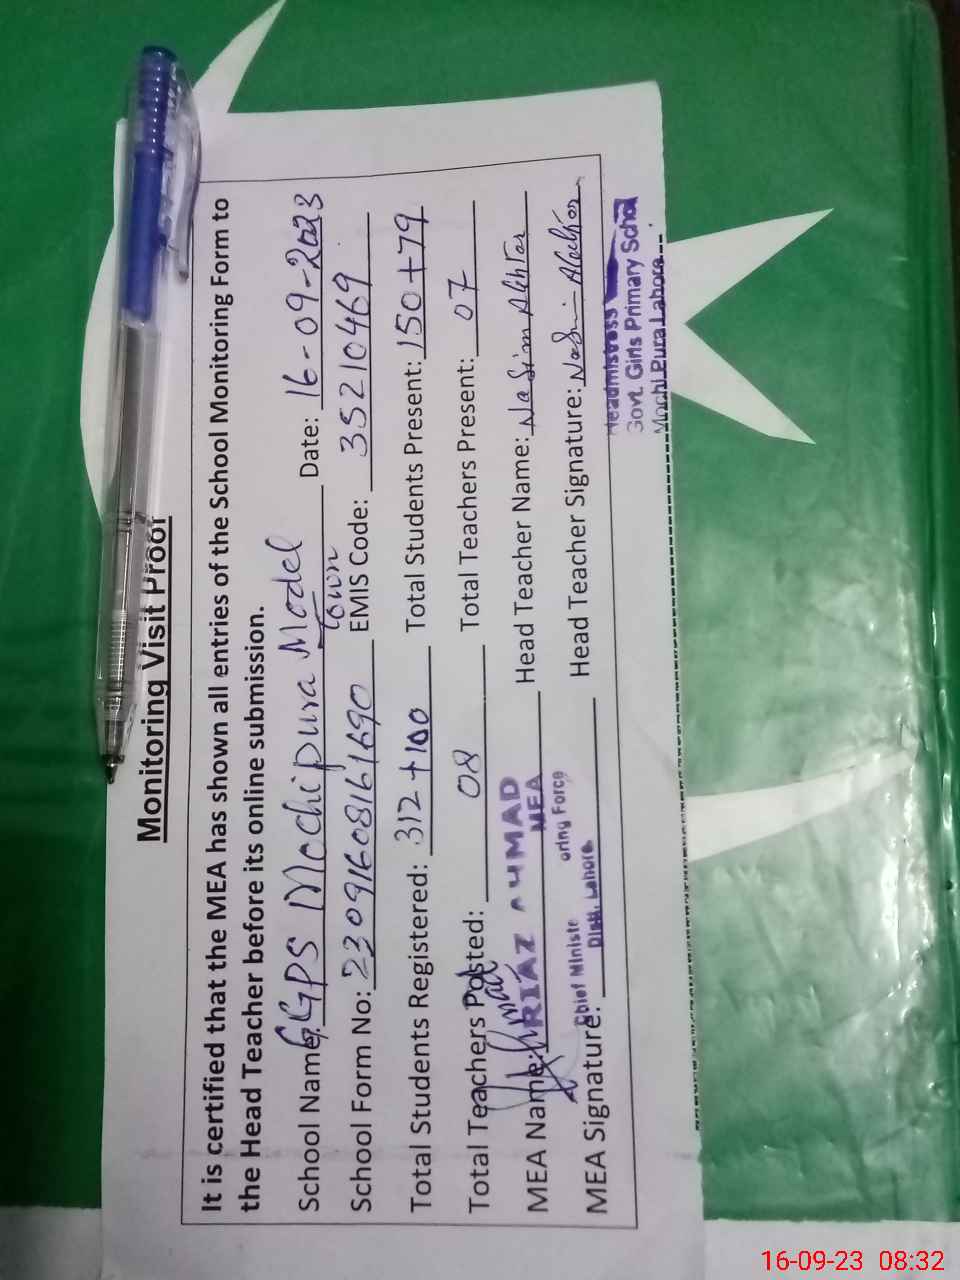 Monitoring Visit Proof
It is certified that the MEA has shown all entries of the School Monitoring Form to
the Head Teacher before its online submission.
School Name: GGPS Mochipura Model Town Date: 16-09-2023
School Form No: 23091608161690 EMIS Code: 35210469
Total Students Registered: 312+100 Total Students Present: 150+79
Total Teachers Posted: 08 Total Teachers Present: 07
MEA Name: RIAZ AHMAD MEA Head Teacher Name: Nasim Akhtar
Chief Ministe oring Force
Distt. Lahore
MEA Signature: Head Teacher Signature: Nasim Akhtar
Headmistress
Govt. Girls Primary School
Mochi Pura Lahore
16-09-23 08:32